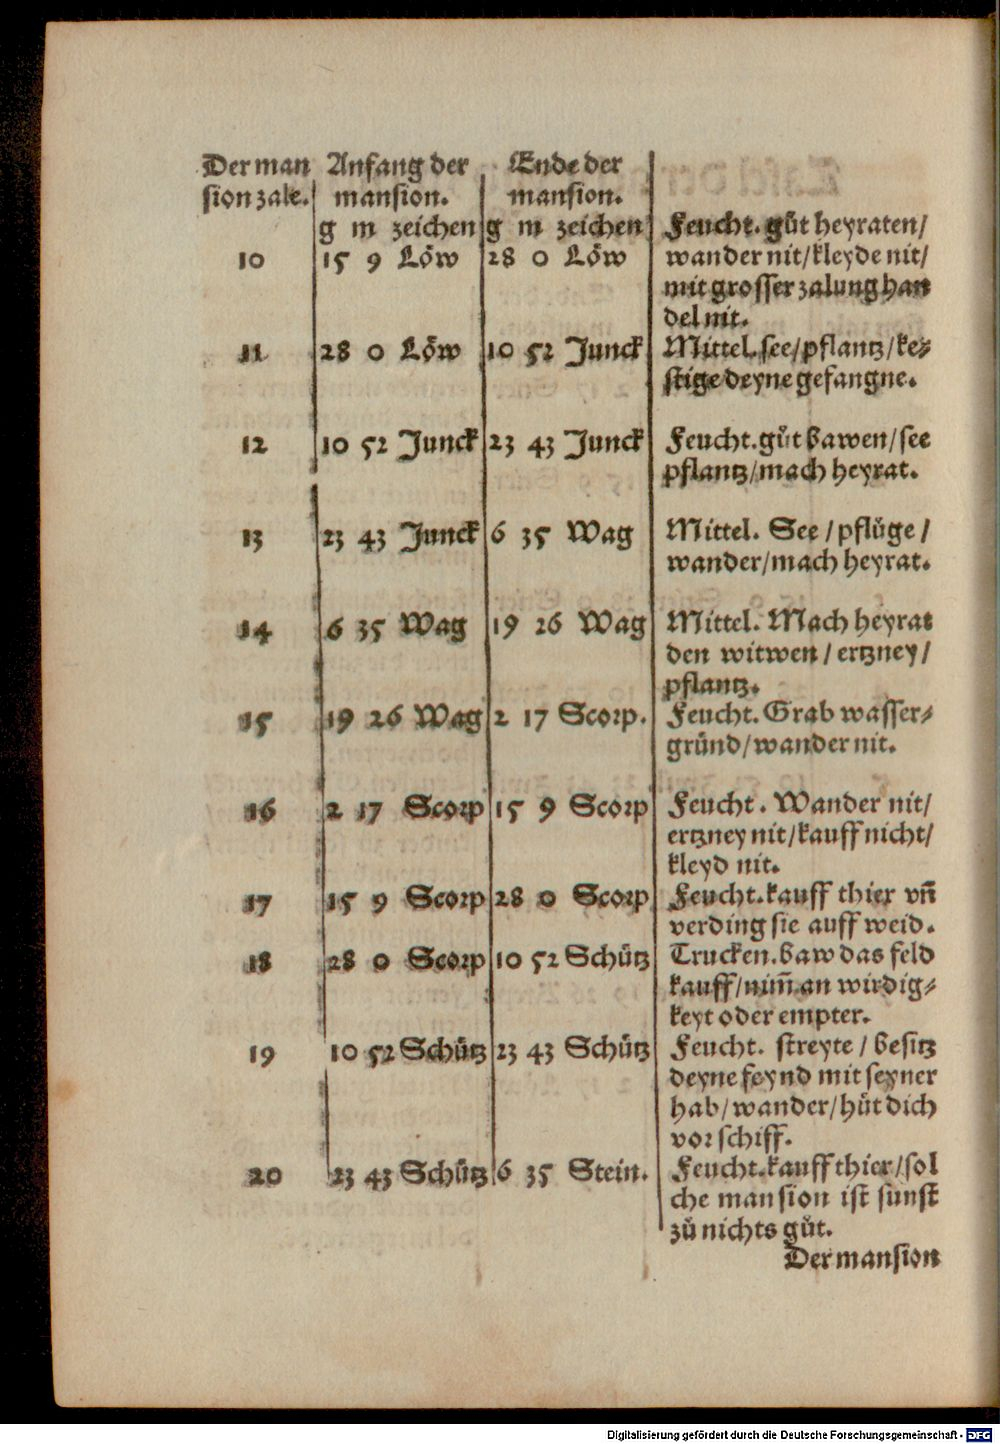 Der man Anfang der Ende der
sion zale. mansion. mansion.
g m zeichen g m zeichen Feucht. gůt heyraten/
10 15 9 Löw 28 0 Löw wander nit/kleyde nit/
mit grosser zalung han
del nit.
11 28 0 Löw 10 52 Junck Mittel. see/pflantz/ke⸗
stige deyne gefangne.
12 10 52 Junck 23 43 Junck Feucht. gůt bawen/see
pflantz/mach heyrat.
13 23 43 Junck 6 35 Wag Mittel. See/pflüge/
wander/mach heyrat.
14 6 35 Wag 19 26 Wag Mittel. Mach heyrat
den witwen/ertzney/
pflantz.
15 19 26 Wag 2 17 Scorp. Feucht. Grab wasser⸗
gründ/wander nit.
16 2 17 Scorp 15 9 Scorp Feucht. Wander nit/
ertzney nit/kauff nicht/
kleyd nit.
17 15 9 Scorp 28 0 Scorp Feucht. kauff thier vñ
verding sie auff weid.
18 28 0 Scorp 10 52 Schütz Trucken. baw das feld
kauff/nim̃ an wirdig⸗
keyt oder empter.
19 10 52 Schütz 23 43 Schütz Feucht. streyte/besitz
deyne feynd mit seyner
hab/wander/hüt dich
vor schiff.
20 23 43 Schütz 6 35 Stein. Feucht. kauff thier/sol
che mansion ist sunst
zů nichts gůt.
Der mansion
Digitalisierung gefördert durch die Deutsche Forschungsgemeinschaft - DFG